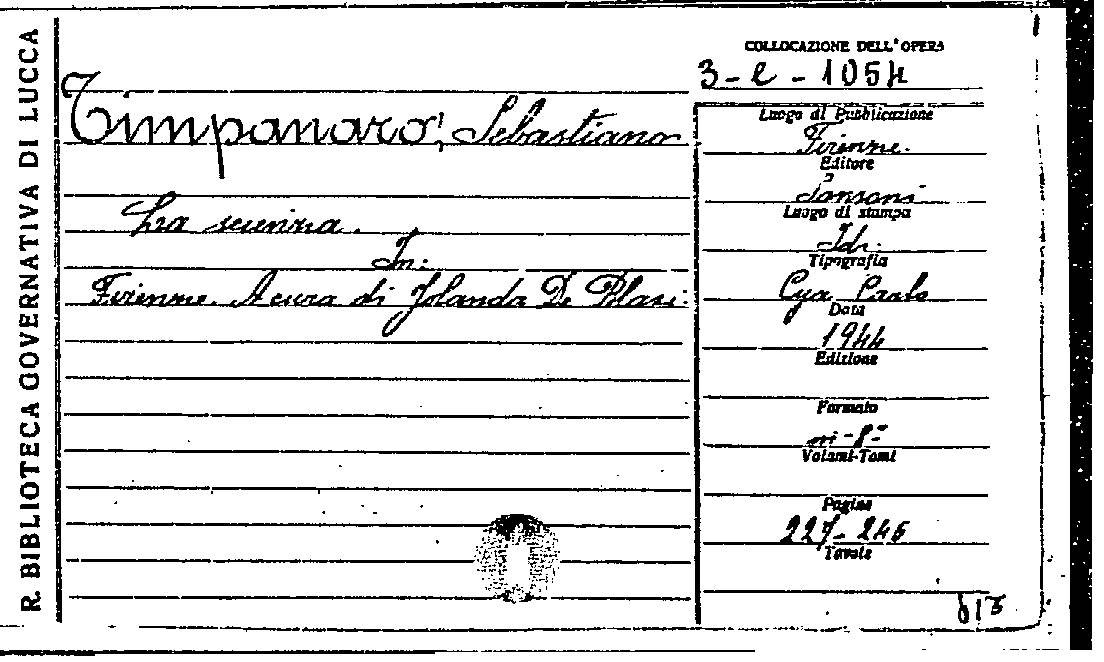 R. BIBLIOTECA GOVERNATIVA DI LUCCA
COLLOCAZIONE DELL'OPERA
3-e-1054
Timpanaro, Sebastiano
La scienza.
In:
Firenze. A cura di Jolanda De Blasi.
Luogo di Pubblicazione
Firenze.
Editore
Sansoni
Luogo di stampa
Id.
Tipografia
Cya Carlo
Data
1944
Edizione
Formato
in-8°
Volumi-Tomi
Pagine
227-245
Tavole